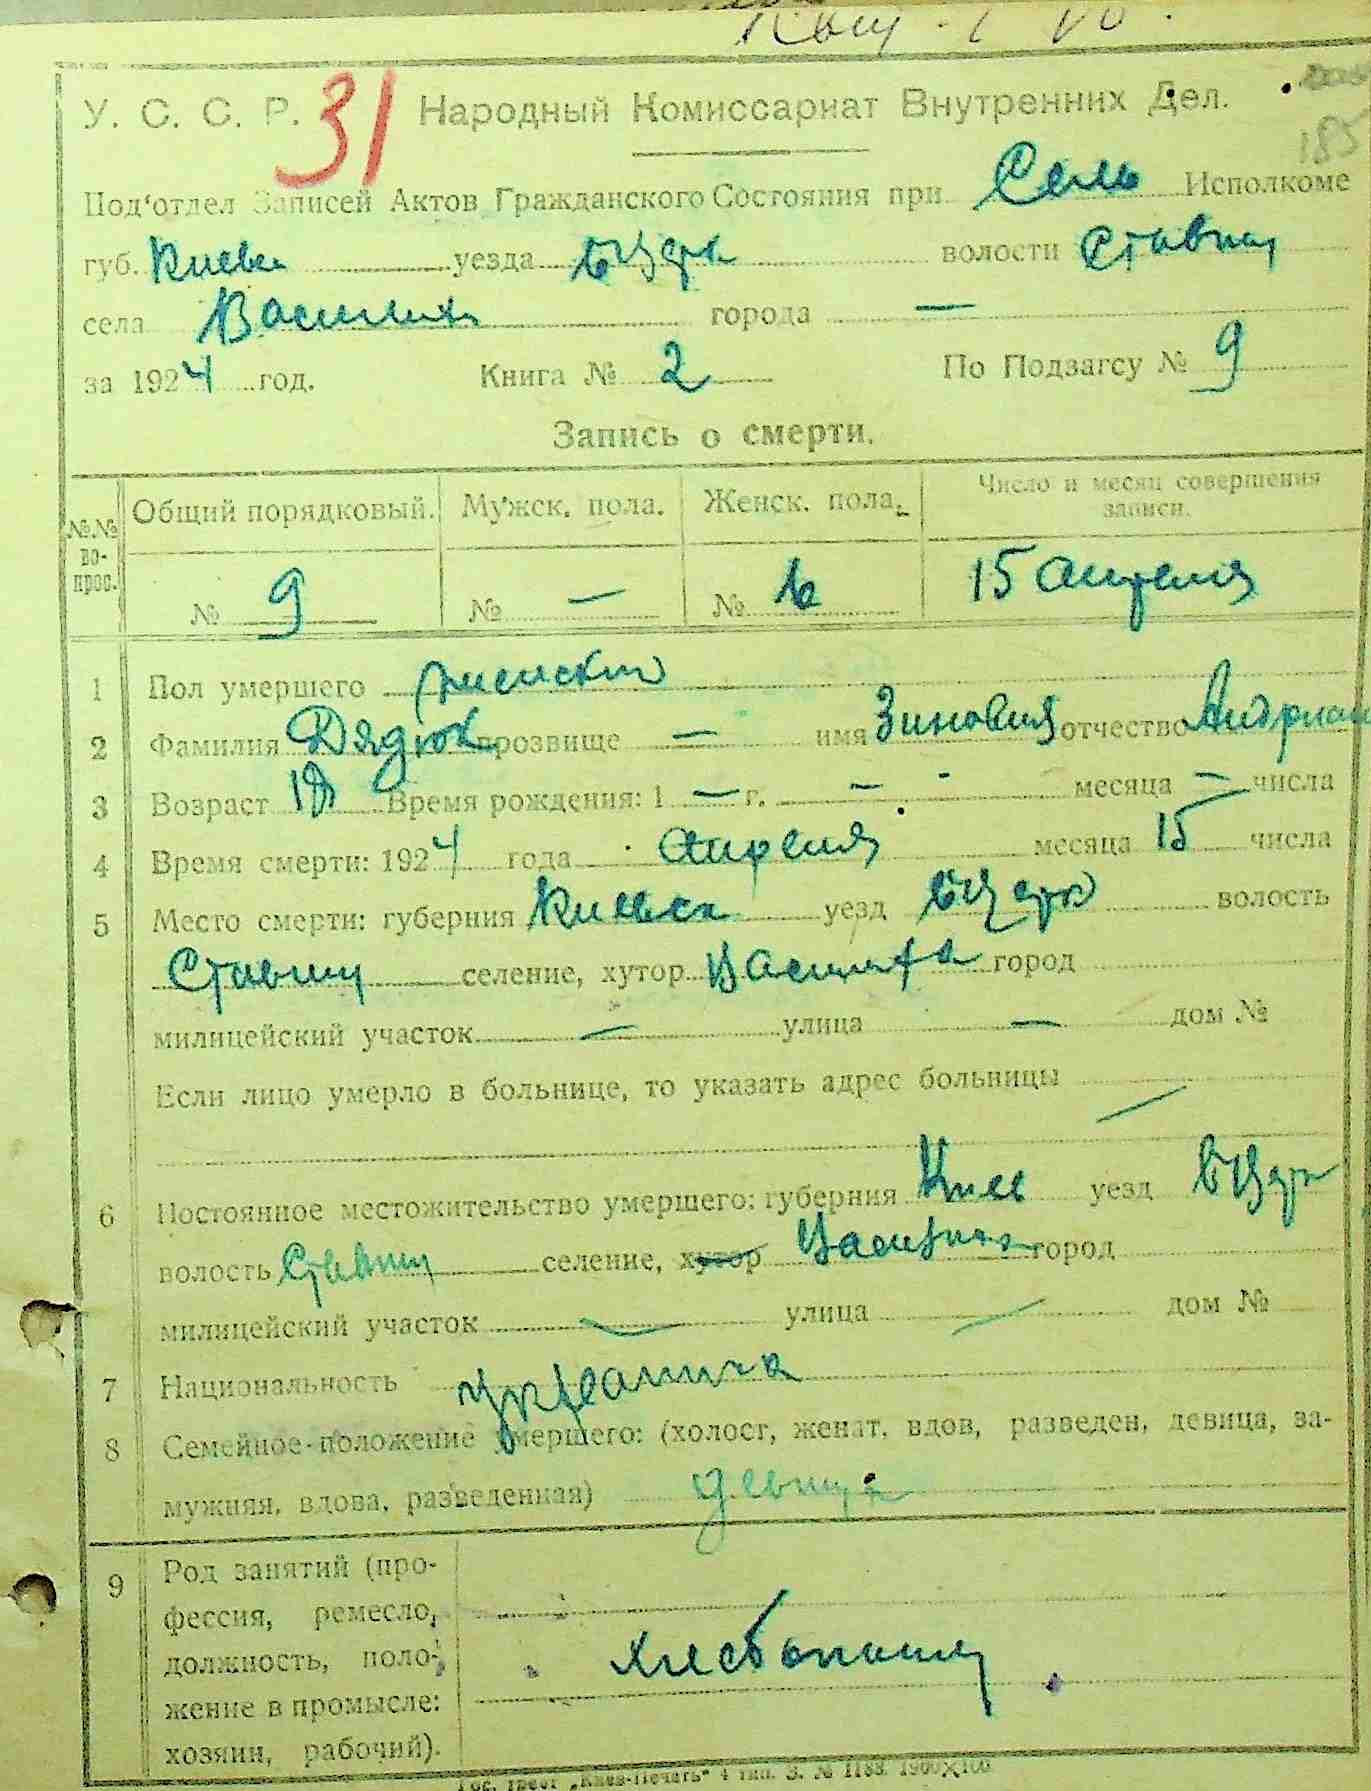 У. С. С. Р. 31 Народный Комиссариат Внутренних Дел.
185
Под'отдел Записей Актов Гражданского Состояния при Сель Исполкоме
губ. Киевск уезда БЦерк волости Ставищ
села Василиха города —
за 1924 год. Книга № 2 По Подзагсу № 9
Запись о смерти.
№№ вопрос. Общий порядковый. Мужск. пола. Женск. пола. Число и месяц совершения записи.
№ 9 № — № 6 15 апреля
1 Пол умершего женский
2 Фамилия Дядюк прозвище — имя Зиновия отчество Андриан
3 Возраст Время рождения: 1 — г. — месяца — числа
4 Время смерти: 1924 года апреля месяца 15 числа
5 Место смерти: губерния Киевск уезд БЦерк волость
Ставищ селение, хутор Василиха город
милицейский участок — улица — дом №
Если лицо умерло в больнице, то указать адрес больницы —
6 Постоянное местожительство умершего: губерния Киев уезд БЦерк
волость Ставищ селение, хутор Василиха город
милицейский участок — улица — дом №
7 Национальность украинка
8 Семейное положение умершего: (холост, женат, вдов, разведен, девица, за-
мужняя, вдова, разведенная) девица
9 Род занятий (про-
фессия, ремесло,
должность, поло- хлебопашец
жение в промысле:
хозяин, рабочий).
Гос. трест „Киев-Печать" 4 тип. З. № 1188. 1900×100